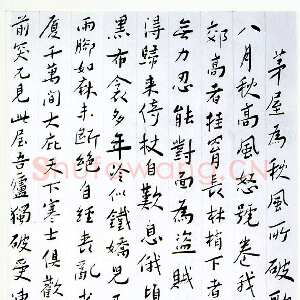 茅屋為秋風所破
八月秋高風怒號卷我
郊高者挂罥長林梢下者
無力忍能對面為盜賊
得歸來倚杖自歎息俄頃
黑布衾多年冷似鐵嬌兒
雨腳如麻未斷絕自經喪亂少
廈千萬間大庇天下寒士俱歡
前突兀見此屋吾廬獨破受凍